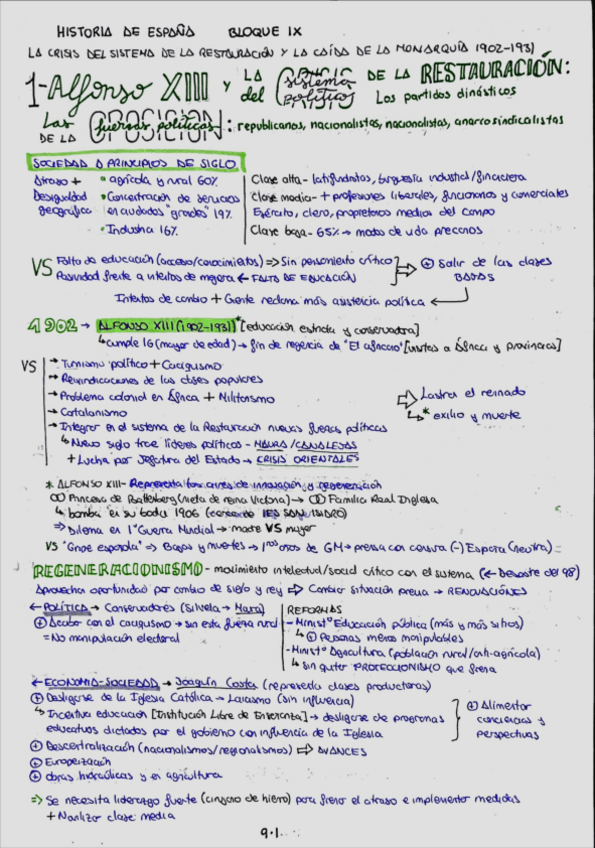 HISTORIA DE ESPAÑA BLOQUE IX
LA CRISIS DEL SISTEMA DE LA RESTAURACIÓN Y LA CAÍDA DE LA MONARQUÍA 1902-1931
1-Alfonso XIII y LA CRISIS DE LA RESTAURACIÓN:
del sistema político Los partidos dinásticos
Las fuerzas políticas: republicanos, nacionalistas, nacionalistas, anarcosindicalistas
DE LA OPOSICIÓN
SOCIEDAD A PRINCIPIOS DE SIGLO
Atraso + • agrícola y rural 60%
Desigualdad • Concentración de servicios
geográfica en ciudades "grandes" 19%
• Industria 16%
Clase alta - latifundistas, burguesía industrial/financiera
Clase media - + profesiones liberales, funcionarios y comerciales
Ejército, clero, propietarios medios del campo
Clase baja - 65% → modos de vida precarios
VS Falta de educación (acceso/conocimientos) ⇒ Sin pensamiento crítico
Pasividad frente a intentos de mejora ← FALTA DE EDUCACIÓN
⊕ Salir de las clases
BAJAS
Intentos de cambio + Gente reclama más asistencia política ←
1902 → ALFONSO XIII (1902-1931) *[educación estricta y conservadora]
↳ cumple 16 (mayor de edad) → fin de regencia de [visitas a África y provincias]
VS → Turnismo político + Caciquismo
→ Reivindicaciones de las clases populares
→ Problema colonial en África + Militarismo
→ Catalanismo
→ Integrar en el sistema de la Restauración nuevas fuerzas políticas
↳ Nuevo siglo trae líderes políticos - MAURA/CANALEJAS
+ Lucha por Jefatura del Estado → CRISIS ORIENTALES
⇨ Lastra el reinado
↳ * exilio y muerte
* ALFONSO XIII - Representa funciones de innovación y regeneración
Princesa de Battenberg (nieta de reina Victoria) → Familia Real Inglesa
↳ bomba en su boda 1906
⇒ Dilema en 1ª Guerra Mundial → madre VS mujer
VS "Gripe española" ⇒ Bajas y muertes → 1ros años de GM → prensa con censura (-) España (neutra)
REGENERACIONISMO - movimiento intelectual/social crítico con el sistema (← Desastre del 98)
Aprovecha oportunidad por cambio de siglo y rey ⇨ Cambiar situación previa → RENOVACIONES
← POLÍTICA → Conservadores (Silvela → Maura)
⊕ Acabar con el caciquismo → sin esta fuerza rural
= No manipulación electoral
REFORMAS
- Minist° Educación pública (más y más sitios)
↳ ⊕ Personas menos manipulables
- Minist° Agricultura (población rural/anti-agrícola)
↳ sin quitar PROTECCIONISMO que frena
← ECONOMÍA-SOCIEDAD → Joaquín Costa (representa clases productoras)
⊕ Desligarse de la Iglesia Católica → Laicismo (sin influencia)
↳ Incentiva educación [Institución Libre de Enseñanza] → desligarse de programas
educativos dictados por el gobierno con influencia de la Iglesia
⊕ Alimentar
conciencias y
perspectivas
⊕ Descentralización (nacionalismos/regionalismos) ⇨ AVANCES
⊕ Europeización
⊕ obras hidráulicas y en agricultura
⇒ Se necesita liderazgo fuerte (cirujano de hierro) para frenar el atraso e implementar medidas
+ Movilizar clase media
9.1